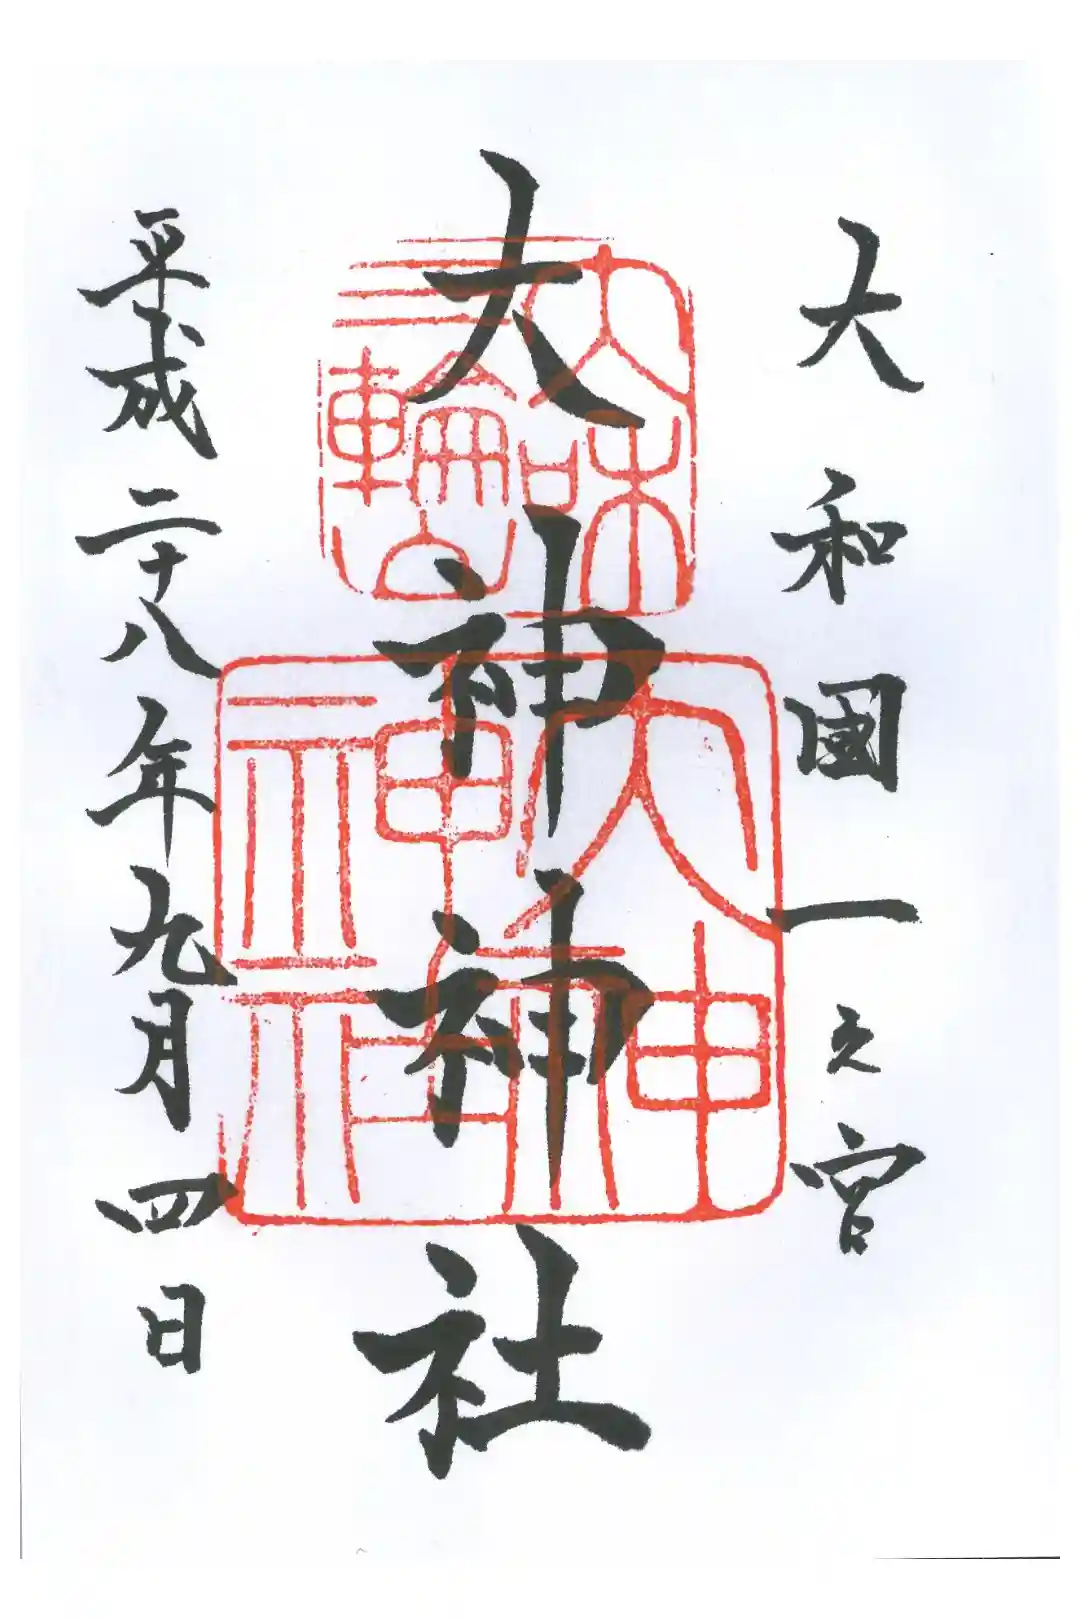 大和國一之宮
大神神社
平成二十八年九月四日
大和
三輪山
大神
神社